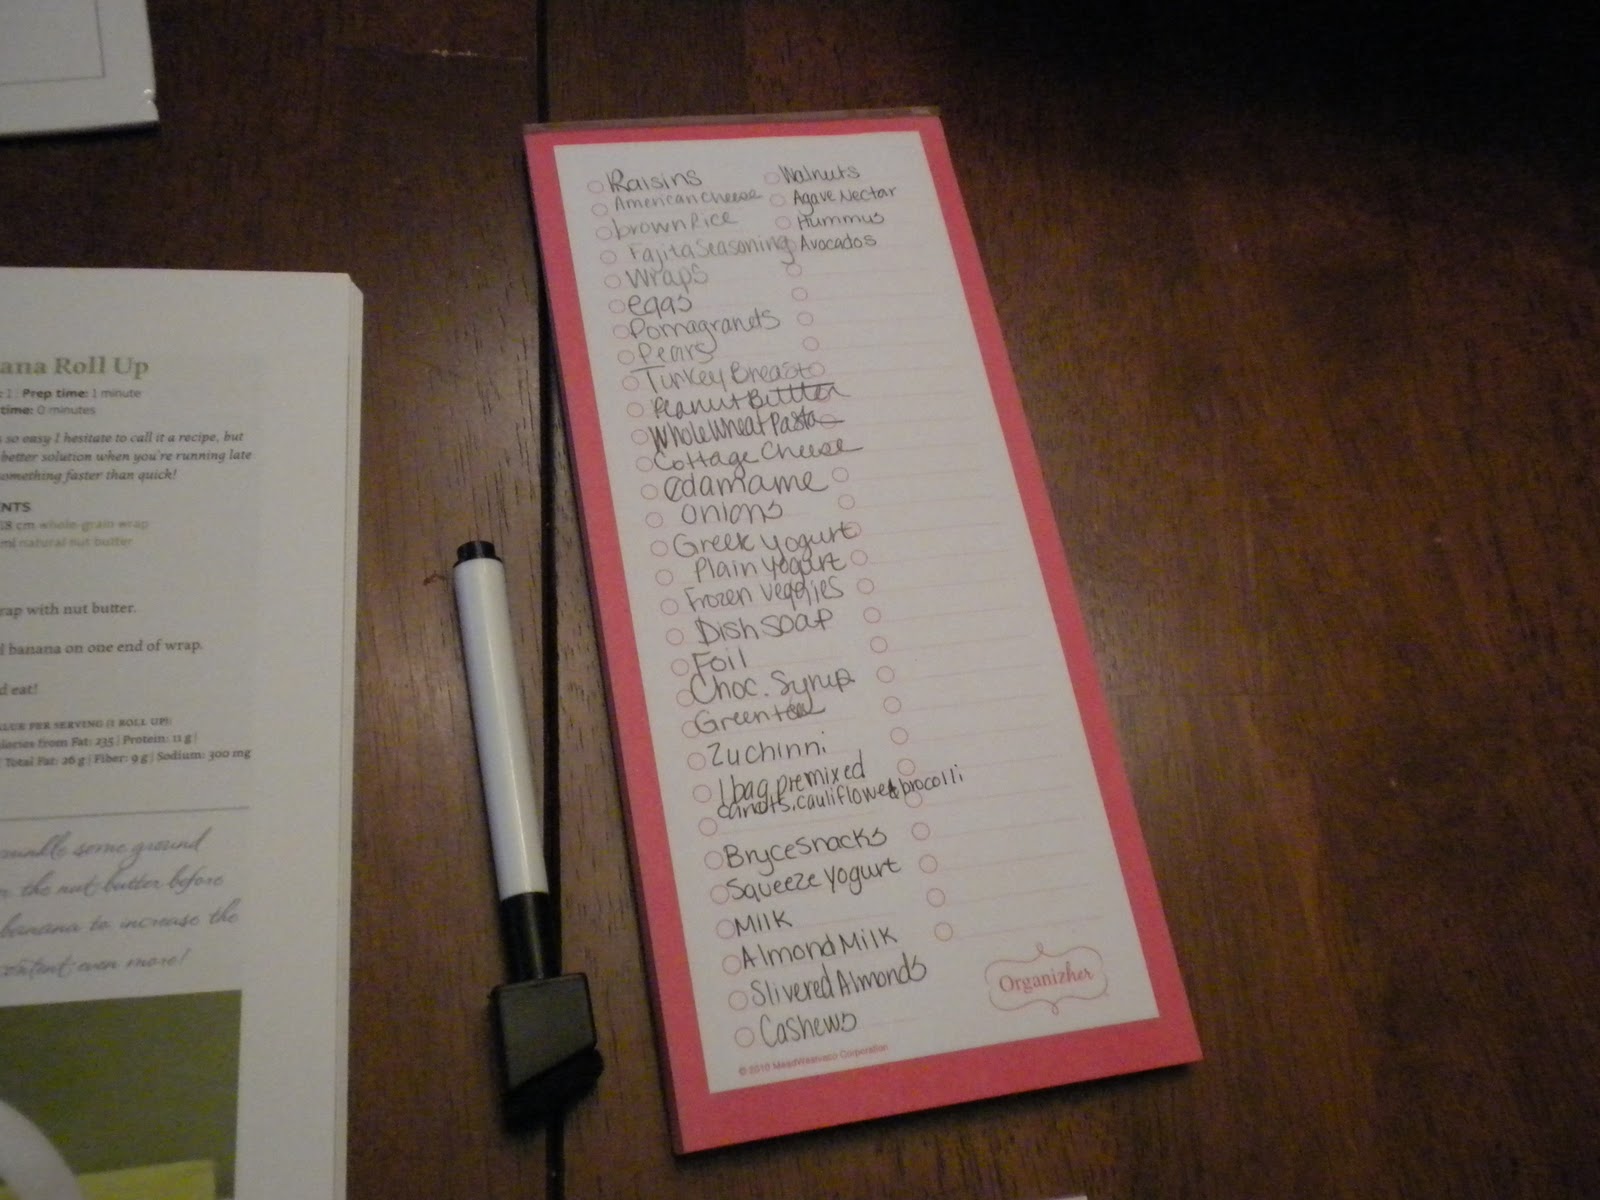 ana Roll Up
: 1 | Prep time: 1 minute
time: 0 minutes
s so easy I hesitate to call it a recipe, but
better solution when you're running late
something faster than quick!
ENTS
18 cm whole-grain wrap
ml natural nut butter
rap with nut butter.
l banana on one end of wrap.
d eat!
ALUE PER SERVING (1 ROLL UP):
alories from Fat: 235 | Protein: 11 g |
Total Fat: 26 g | Fiber: 9 g | Sodium: 300 mg
some ground
the nut butter before
banana to increase the
content even more!
Raisins
American Cheese
brown Rice
Fajita Seasoning
Wraps
eggs
Pomagranets
Pears
Turkey Breast
Peanut Buttter
Whole Wheat Pasta
Cottage Cheese
edamame
onions
Greek yogurt
Plain yogurt
Frozen veggies
Dish soap
Foil
Choc. Syrup
Green tea
Zuchinni
1 bag premixed
carrots, cauliflower & brocolli
Bryce snacks
Squeeze yogurt
Milk
Almond Milk
Slivered Almonds
Cashews
Walnuts
Agave Nectar
Hummus
Avocados
Organizher
© 2010 MeadWestvaco Corporation